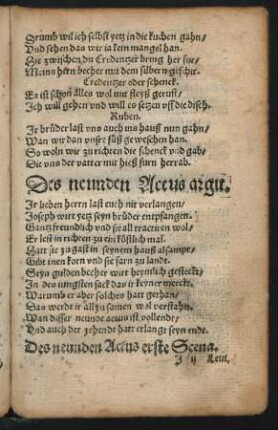 Drumb wil ich selbst yetz in die kuchen gahn/
Vnd sehen das wir ja kein mangel han.
Hie zwischen du Credentzer bring her für/
Meins herrn becher mit dem silbern geschir.
Credentzer oder schenck.
Es ist schon alles wol mit fleyß gerust/
Ich will gehen vnd will es setzen vff die disch.
Ruben.
Ir brüder last vns auch ins hauß nun gahn/
Wan wir dan vnsre füß geweschen han.
So woln wir zu richten die schenck vnd gab/
Die vns der vatter mit hieß fürn herrab.
Des neunden Actus argu.
Ir lieben herrn last euch nit verlangen/
Joseph wirt yetz seyn brüder entpfangen.
Gantz freundlich vnd sie all tractiren wol/
Er lest in richten zu ein köstlich mal.
Halt sie zu gast in seynem hauß alsampt/
Gibt inen korn vnd sie farn zu lande.
Seyn gulden becher wirt heymlich gesteckt/
In des iungsten sack das ir keyner merckt.
Warumb er aber solches hatt gethan/
Das werdt ir all zu samen wol verstahn.
Wan diser neunde actus ist vollendt/
Vnd auch der zehende hatt erlangt seyn ende.
Des neunden Actus erste Scena.
J ij Leui.